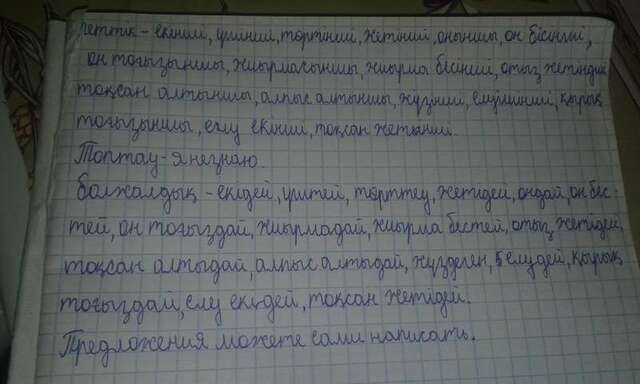 реттік - екінші, үшінші, төртінші, жетінші, оныншы, он бесінші,
он тоғызыншы, жиырмасыншы, жиырма бесінші, отыз жетінші
тоқсан алтыншы, алпыс алтыншы, жүзінші, елуінший, қырық
тоғызыншы, елу екінші, тоқсан жетінші.
Топтау - я незнаю.
болжалдық - екідей, үштей, төрттеу, жетідей, ондай, он бес-
тей, он тоғыздай, жиырмадай, жиырма бестей, отыз жетідей,
тоқсан алтыдай, алпыс алтыдай, жүздеген, елудей, қырық
тоғыздай, елу екідей, тоқсан жетідей.
Предложения можете сами написать.